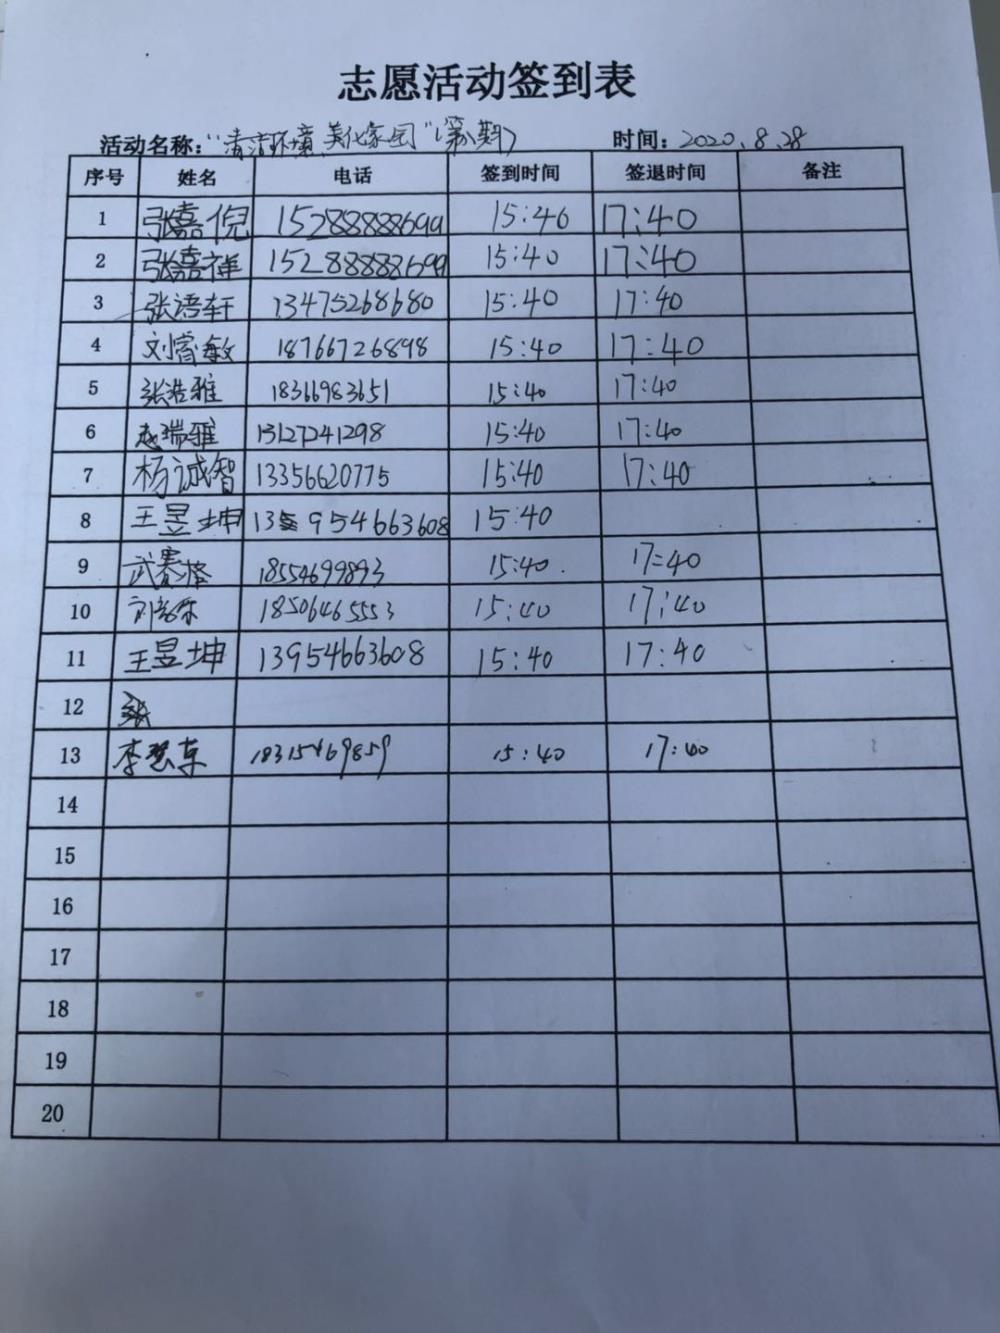 志愿活动签到表
活动名称："清洁环境，美化家园"（第八期） 时间：2020.8.28
序号 姓名 电话 签到时间 签退时间 备注
1 张嘉倪 15288888699 15:40 17:40
2 张嘉祥 15288888699 15:40 17:40
3 张语轩 13475268680 15:40 17:40
4 刘睿敏 18766726898 15:40 17:40
5 张浩雅 18366983651 15:40 17:40
6 赵瑞雅 13127241298 15:40 17:40
7 杨诚智 13356620775 15:40 17:40
8 王昱坤 13954663608 15:40
9 武赛格 18554699893 15:40. 17:40
10 18506465553 15:40 17:40
11 王昱坤 13954663608 15:40 17:40
12
13 李慧东 18315469859 15:40 17:40
14
15
16
17
18
19
20